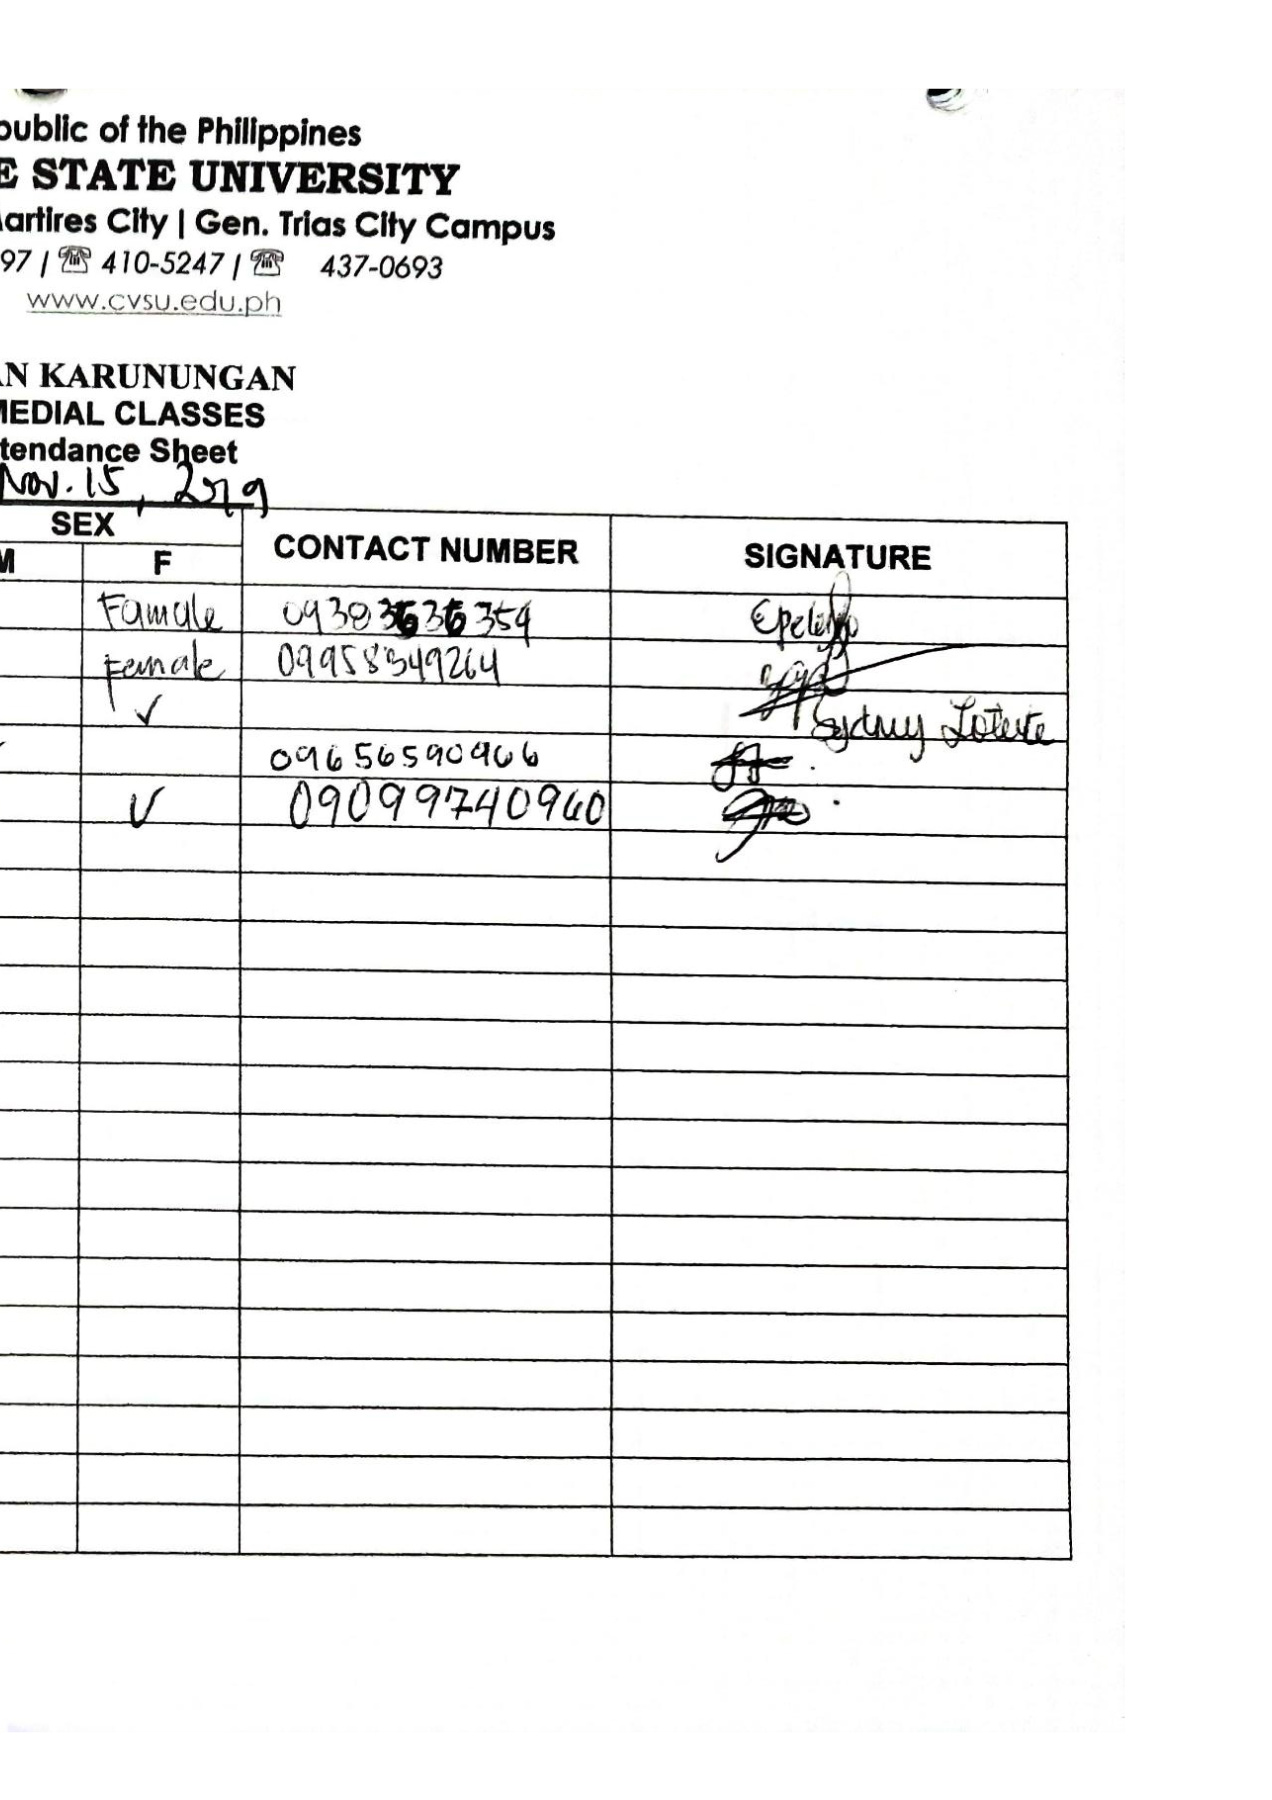 public of the Philippines
E STATE UNIVERSITY
artires City | Gen. Trias City Campus
97 / ☏ 410-5247 / ☏ 437-0693
www.cvsu.edu.ph
AN KARUNUNGAN
MEDIAL CLASSES
tendance Sheet
Nov. 15, 2019
SEX CONTACT NUMBER SIGNATURE
M F
Famale
Female 09958349264
✓ Sydney
09656590966
✓ 09099740960